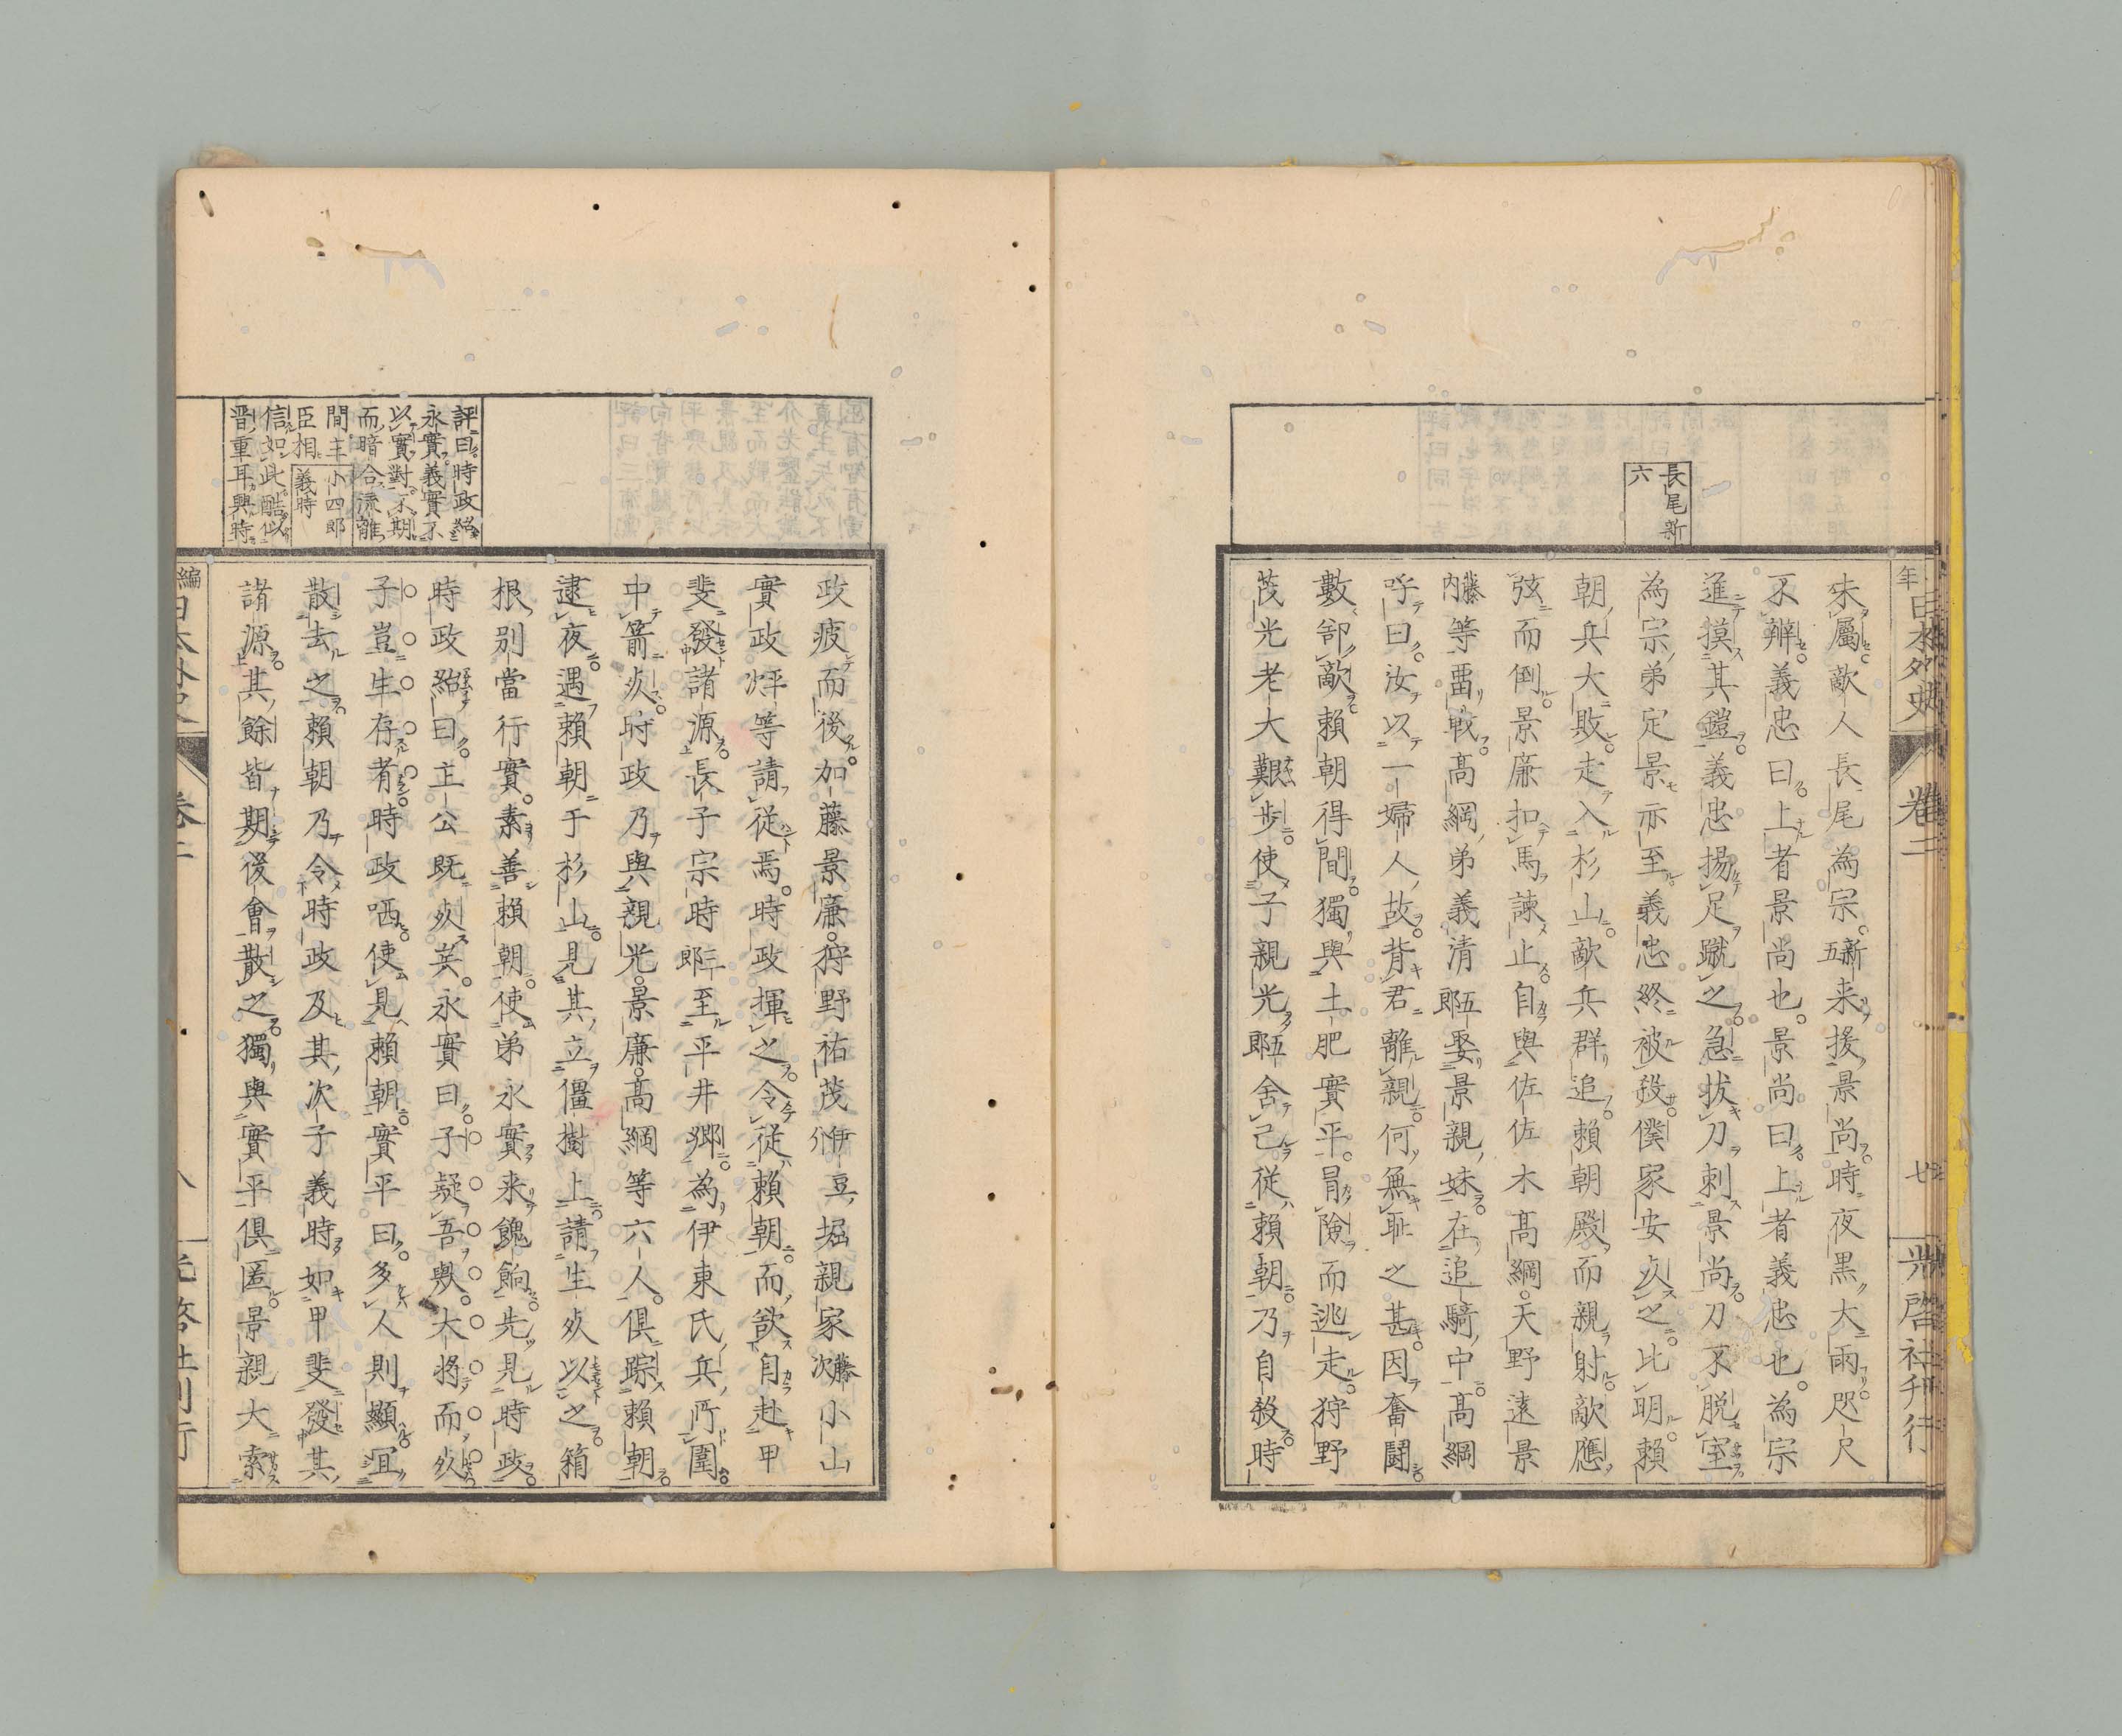 長尾新
六
未屬敵人長尾為宗新五来援景尚時夜黒大雨咫尺
不辨義忠曰上者景尚也景尚曰上者義忠也為宗
進摸其鎧義忠揚足蹴之急抜刀刺景尚刀不脱室
為宗弟定景亦至義忠終被殺僕家安死之比明頼
朝兵大敗走入杉山敵兵群追頼朝殿而親射敵應
弦而倒景廉扣馬諫止自與佐佐木髙綱天野遠景
藤内等畱戦髙綱弟義清五郎娶景親妹在追騎中髙綱
呼曰汝以一婦人故背君離親何無耻之甚因奮闘
數郤敵頼朝得間獨與土肥實平冒險而逃走狩野
茂光老大艱歩使子親光五郎舍己従頼朝乃自殺時
年 日本外史 卷二 七 光啓社刊行
評曰時政紿
永實義實不
以實對不期
而暗合流離
間主小四郎
臣相義時
信如此酷似
晋重耳與時
政疲而後加藤景廉狩野祐茂伊豆介堀親家藤次小山
實政坪等請従焉時政揮之令従頼朝而欲自赴甲
斐發諸源長子宗時三郎至平井郷為伊東氏兵所圍
中箭死時政乃與親光景廉髙綱等六人倶踪頼朝
逮夜遇頼朝于杉山見其立僵樹上請生死以之箱
根別當行實素善頼朝使弟永實来餽餉先見時政
時政紿曰主公既死矣永實曰子疑吾歟大将而死
子豈生存者時政哂使見頼朝實平曰多人則顯宜
散去之頼朝乃令時政及其次子義時如甲斐發其
諸源其餘皆期後會散之獨與實平倶匿景親大索
編 日本外史 卷二 八 光啓社刊行